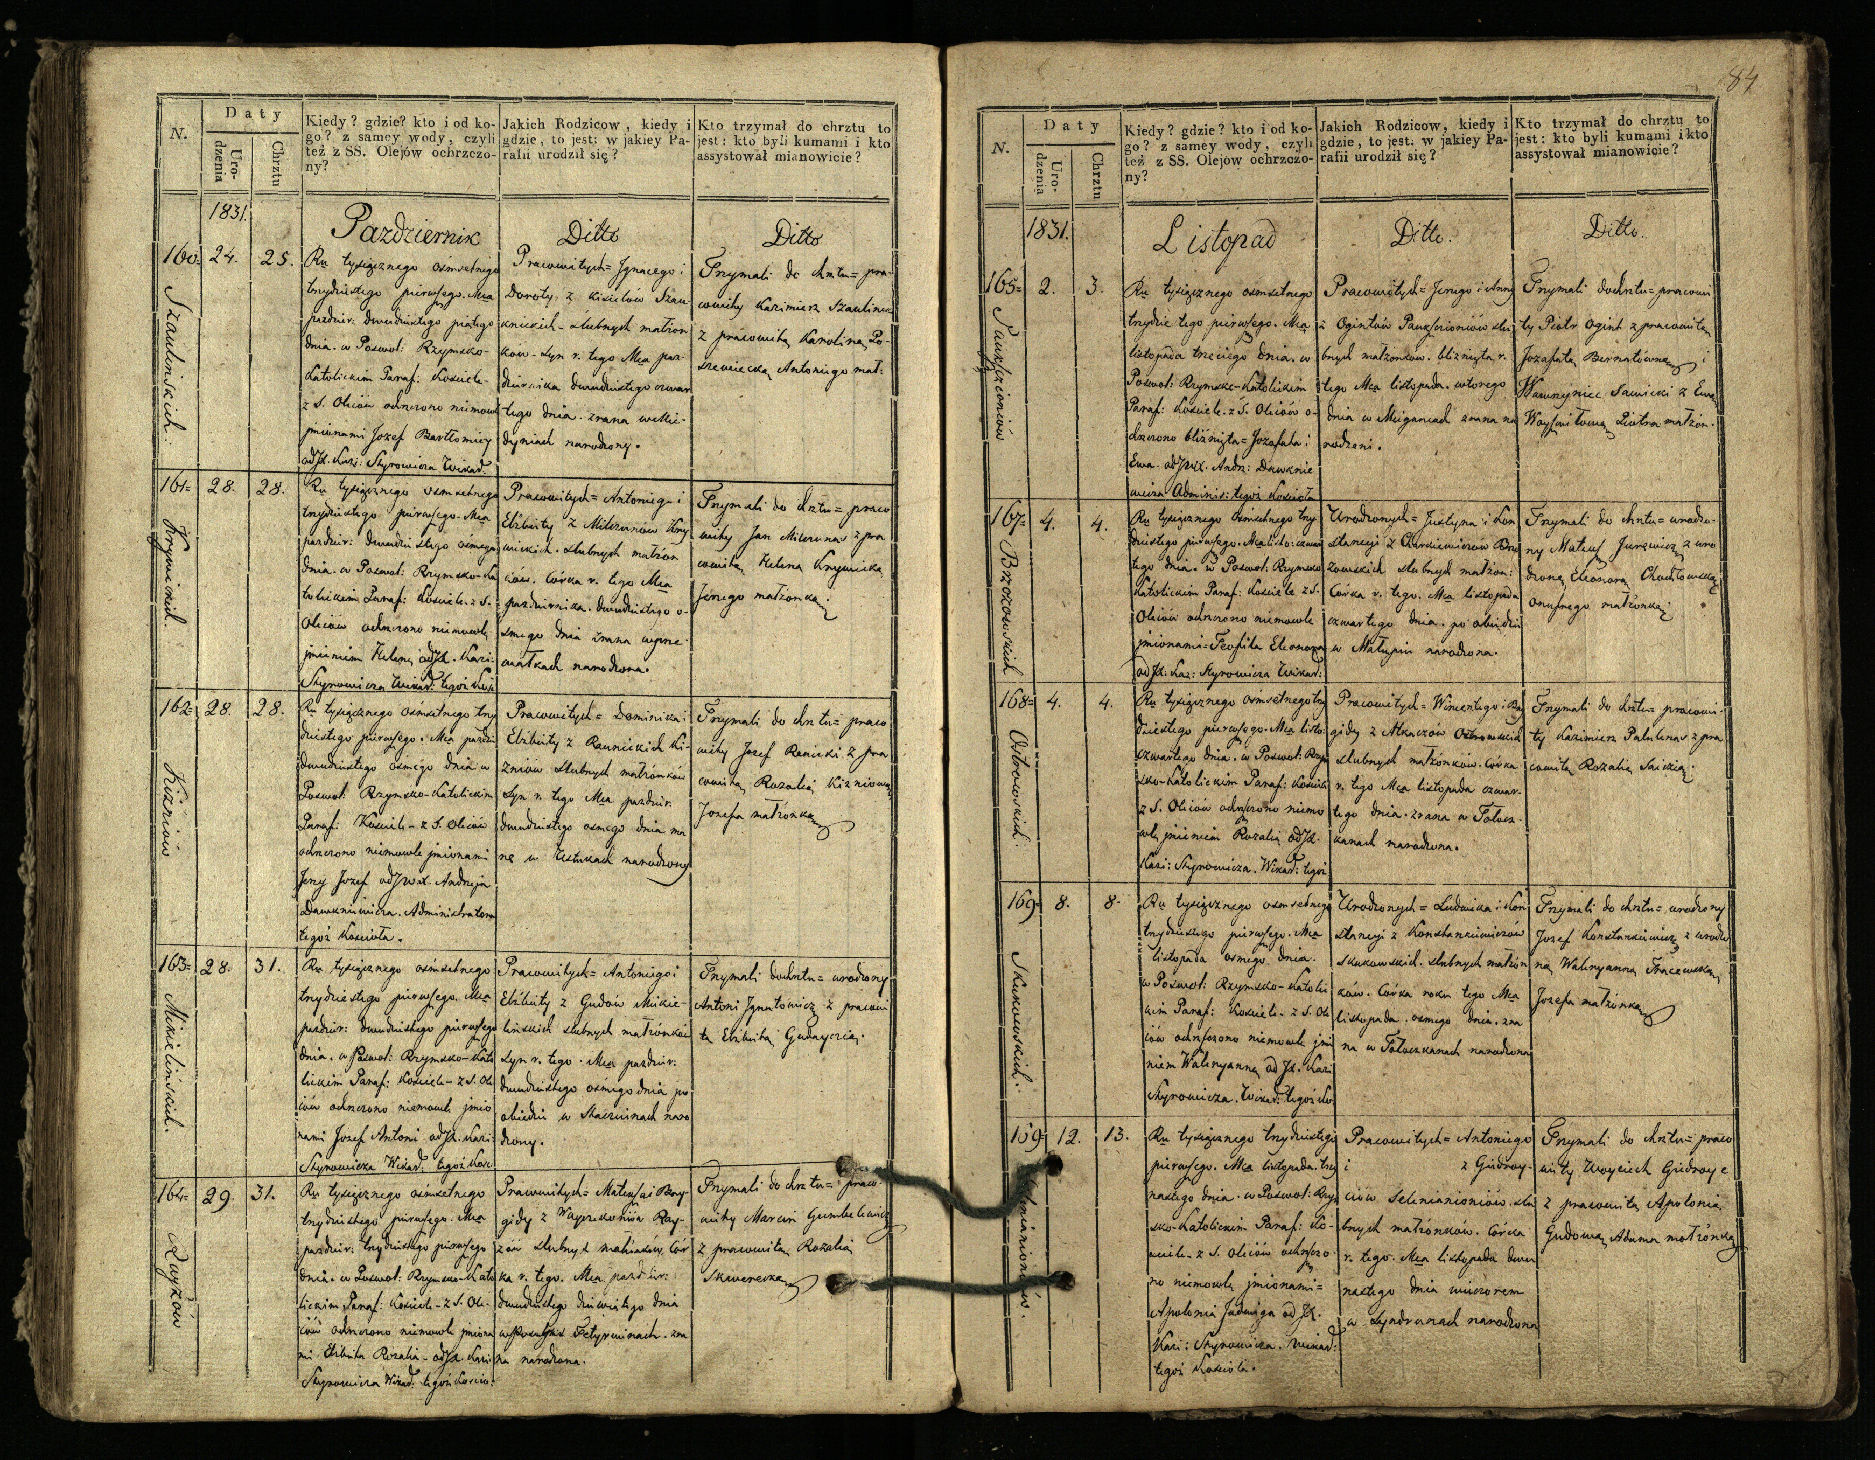 N.
Daty
Urodzenia
Chrztu
Kiedy? gdzie? kto i od ko-
go? z samey wody, czyli
też z SS. Olejów ochrzczo-
ny?
Jakich Rodzicow, kiedy i
gdzie, to jest: w jakiey Pa-
rafii urodził się?
Kto trzymał do chrztu to
jest: kto byli kumami i kto
assystował mianowicie?
1831.
Pazdziernik
Ditto
Ditto
160
24.
25.
Szaulinskich.
Ru tysiącznego osmsetnego
trzydziestego pierwszego. Mca
pazdzier: dwudziestego piątego
dnia. w Poswol: Rzymsko-
Katolickim Paraf: Kościele-
z S. Oleiów ochrzczono niemowle
jmionami Jozef Bartłomiey
od JX. Kazi: Styrowicza Wikar:
Pracowitych= Jgnacego i
Doroty z
slubnych małżon
kow. Syn r. tego Mca paz-
dziernika dwudziestego czwar
tego dnia. zrana w
dyniach narodzony.
Trzymali do chrztu= pra-
cowity Kazimierz
z pracowitą Karoliną
Antoniego mał:
161
28.
28.
Krywickich.
Ru tysiącznego osmsetnego
trzydziestego pierwszego. Mca
pazdzier: dwudziestego osmego
dnia. w Poswol: Rzymsko-Ka
tolickim Paraf: Kościele. z S.
Oleiow ochrzczono niemowle
jmieniem Helena od JX. Kazi:
Styrowicza Wikar: tegoż Kość
Pracowitych= Antoniego i
Elżbiety z Milwunów Kry
wickich. slubnych małżon
ków. Córka r. tego Mca
pazdziernika. dwudziestego o-
smego dnia zrana
narodzona.
Trzymali do chrztu= praco
wity Jan Milwunas z pra
cowitą Heleną Krywicką
Jerzego małżonką
162
28.
28.
Kiżniow
Ru tysiącznego osmsetnego trzy
dziestego pierwszego. Mca pazdzi
dwudziestego osmego dnia w
Poswol: Rzymsko-Katolickim
Paraf: Kościele- z S. Oleiów
ochrzczono niemowle jmionami
Jerzy Jozef od JWX. Andrzeja
Dawkniewicza. Administratora
tegoż Kościoła.
Pracowitych= Dominika i
Elżbiety z Raunickich Ki-
żniow slubnych małżonków
Syn r. tego Mca pazdzier.
dwudziestego osmego dnia
w narodzony
Trzymali do chrztu= praco
wity Jozef z pra
cowitą Rozalią Kiżniową
Jozefa małżonką
163
28.
31.
Mikielińskich.
Ru tysiącznego osmsetnego
trzydziestego pierwszego. Mca
pazdzier: dwudziestego pierwszego
dnia. w Poswol: Rzymsko-Kato
lickim Paraf: Kościele- z S. Ole
iów ochrzczono niemowle jmio
nami Jozef Antoni od JX. Kazi:
Styrowicza Wikar: tegoż Kość
Pracowitych= Antoniego i
Elżbiety z Gudów Mikie-
lińskich slubnych małżonków
Syn r. tego. Mca pazdzier:
dwudziestego osmego dnia po
obiedzie w naro
dzony.
Trzymali do chrztu= urodzony
Antoni Jgnatowicz z pracowi
tą Elżbietą
164
29.
31.
Rayżów
Ru tysiącznego osmsetnego
trzydziestego pierwszego. Mca
pazdzier: trzydziestego pierwszego
dnia. w Poswol: Rzymsko-Kato
lickim Paraf: Kościele- z S. Ole-
iów ochrzczono niemowle jmiona
mi Elżbieta Rozalia- od JX. Kazi
Styrowicza Wikar: tegoż Kościo:
Pracowitych= Mateusza i Bry-
gidy z Ray-
żów slubnych małżonków Cór
ka r. tego. Mca pazdzier:
dwudziestego dziewiątego dnia
zra
na narodzona.
Trzymali do chrztu= praco-
wity Marcin Gumbelewicz
z pracowitą Rozalią
84
N.
Daty
Urodzenia
Chrztu
Kiedy? gdzie? kto i od ko-
go? z samey wody, czyli
też z SS. Olejów ochrzczo-
ny?
Jakich Rodzicow, kiedy i
gdzie, to jest: w jakiey Pa-
rafii urodził się?
Kto trzymał do chrztu to
jest: kto byli kumami i kto
assystował mianowicie?
1831.
Listopad
Ditto.
Ditto.
165
2.
3.
Ru tysiącznego osmsetnego
trzydziestego pierwszego. Mca
listopada trzeciego dnia. w
Poswol: Rzymsko-Katolickim
Paraf: Kościele. z S. Oleiów o-
chrzczono bliźnięta= Jozafata i
Ewa. od JWX. Andr: Dawknie
wicza Adminis: tegoż Kościoła
Pracowitych= Jerzego i Anny
z Ogintów slu
bnych małżonków. bliźnięta r.
tego Mca listopada. wtorego
dnia w zrana na
rodzeni.
Trzymali do chrztu= pracowi
ty Piotr Ogint z pracowitą
Jozafatą Bernatówną i
Wawrzyniec Sawicki z Ewą
Piotra małżon.
167
4.
4.
Brzozowskich
Ru tysiącznego osmsetnego trzy
dziestego pierwszego. Mca listo: czwar
tego dnia. w Poswol: Rzymsko
Katolickim Paraf: Kościele z S.
Oleiów ochrzczono niemowle
jmionami= Teofila Eleonora
od JX: Kaz: Styrowicza Wikar:
Urodzonych= Justyna i Kon
stancyi z Brzo
zowskich slubnych małżon:
Córka r. tego. Mca listopada
czwartego dnia. po obiedzie
w narodzona.
Trzymali do chrztu= urodzo-
ny Mateusz Jurewicz z uro
dzoną Eleonorą
Onufrego małżonką
168
4.
4.
Ostrowskich.
Ru tysiącznego osmsetnego trzy
dziestego pierwszego. Mca listo:
czwartego dnia. w Poswol: Rzym
sko-Katolickim Paraf: Kościele
z S. Oleiów ochrzczono niemo
wle jmieniem Rozalia od JX.
Kazi: Styrowicza. Wikar: tegoż
Pracowitych= Wincentego i Bry
gidy z Ostrowskich
slubnych małżonków. Córka
r. tego Mca listopada czwar-
tego dnia. zrana w Tołocz-
kanach narodzona.
Trzymali do chrztu= pracowi-
ty Kazimierz z pra
cowitą Rozalią
169
8.
8.
Skukowskich.
Ru tysiącznego osmsetnego
trzydziestego pierwszego. Mca
listopada osmego dnia.
w Poswol: Rzymsko-Katolic
kim Paraf: Kościele- z S. Ole
iów ochrzczono niemowle jmi
niem Waleryanna od JX. Kazi
Styrowicza. Wikar: tegoż Ko
Urodzonych= Ludwika i Kon
stancyi z Konstankiewiczow
Skukowskich. slubnych małżon
ków. Córka roku tego Mca
listopada. osmego dnia. zra
na w Tołoczkanach narodzona
Trzymali do chrztu= urodzony
Jozef Konstankiewicz z urodzo
ną Waleryanną
Jozefa małżonką
159
12.
13.
Ru tysiącznego trzydziestego
pierwszego. Mca listopada. trzy
nastego dnia. w Poswol: Rzy
msko-Katolickim Paraf: Ko-
sciele- z S. Oleiów ochrzczo
no niemowle jmionami=
Apolonia Jadwiga od JX.
Kazi: Styrowicza. Wikar:
tegoż Kościoła.
Pracowitych= Antoniego
i z Giedroy-
ciów Selemanioniów. slu
bnych małżonków. Córka
r. tego. Mca listopada dwu
nastego dnia wieczorem
w narodzona
Trzymali do chrztu= praco
wity Woyciech Giedroyc
z pracowitą Apolonią
Gudową Adama małżonką